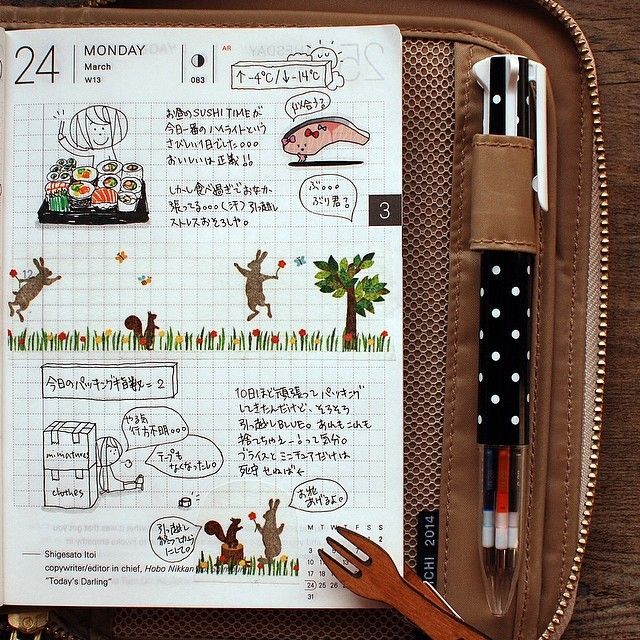 24
MONDAY
March
W13
083
AR
↑-4℃/↓-14℃
お昼のSUSHI TIMEが
今日一番のハイライトという
さびしい1日でした。。。
おいしいは正義!!
似合うう
しかし食べ過ぎでおなか
張ってる。。。(汗)引っ越し
ストレスおそろしや。
ぶ。。。
ぶり君?
3
12
今日のパッキング指数=2
やる気
行方不明。。。
テープも
なくなったし。
miniatures
clothes
10日ほど頑張ってパッキング
してきたんだけど、そろそろ
引っ越しBLUE。あれもこれも
捨てちゃえー!って気分。
ブライスとミニチュアだけは
死守せねば←
お花
あげるよ。
引っ越し
終ってから
にして。
Shigesato Itoi
copywriter/editor in chief, Hobo Nikkan
"Today's Darling"
M T W T F S S
31
2014